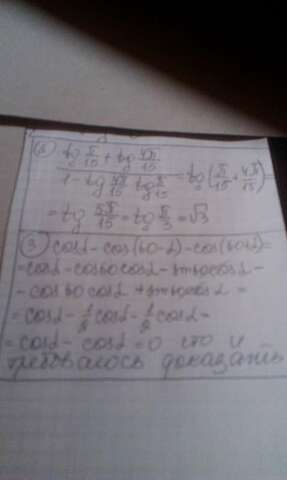 (tg π/15 + tg 4π/15) / (1 - tg 4π/15 tg π/15) = tg(π/15 + 4π/15) =
= tg 5π/15 = tg π/3 = √3
③ cosα - cos(60-α) - cos(60+α) =
= cosα - cos60cosα - sin60cosα -
- cos60cosα + sin60cosα =
= cosα - 1/2 cosα - 1/2 cosα =
= cosα - cosα = 0 что и
требовалось доказать